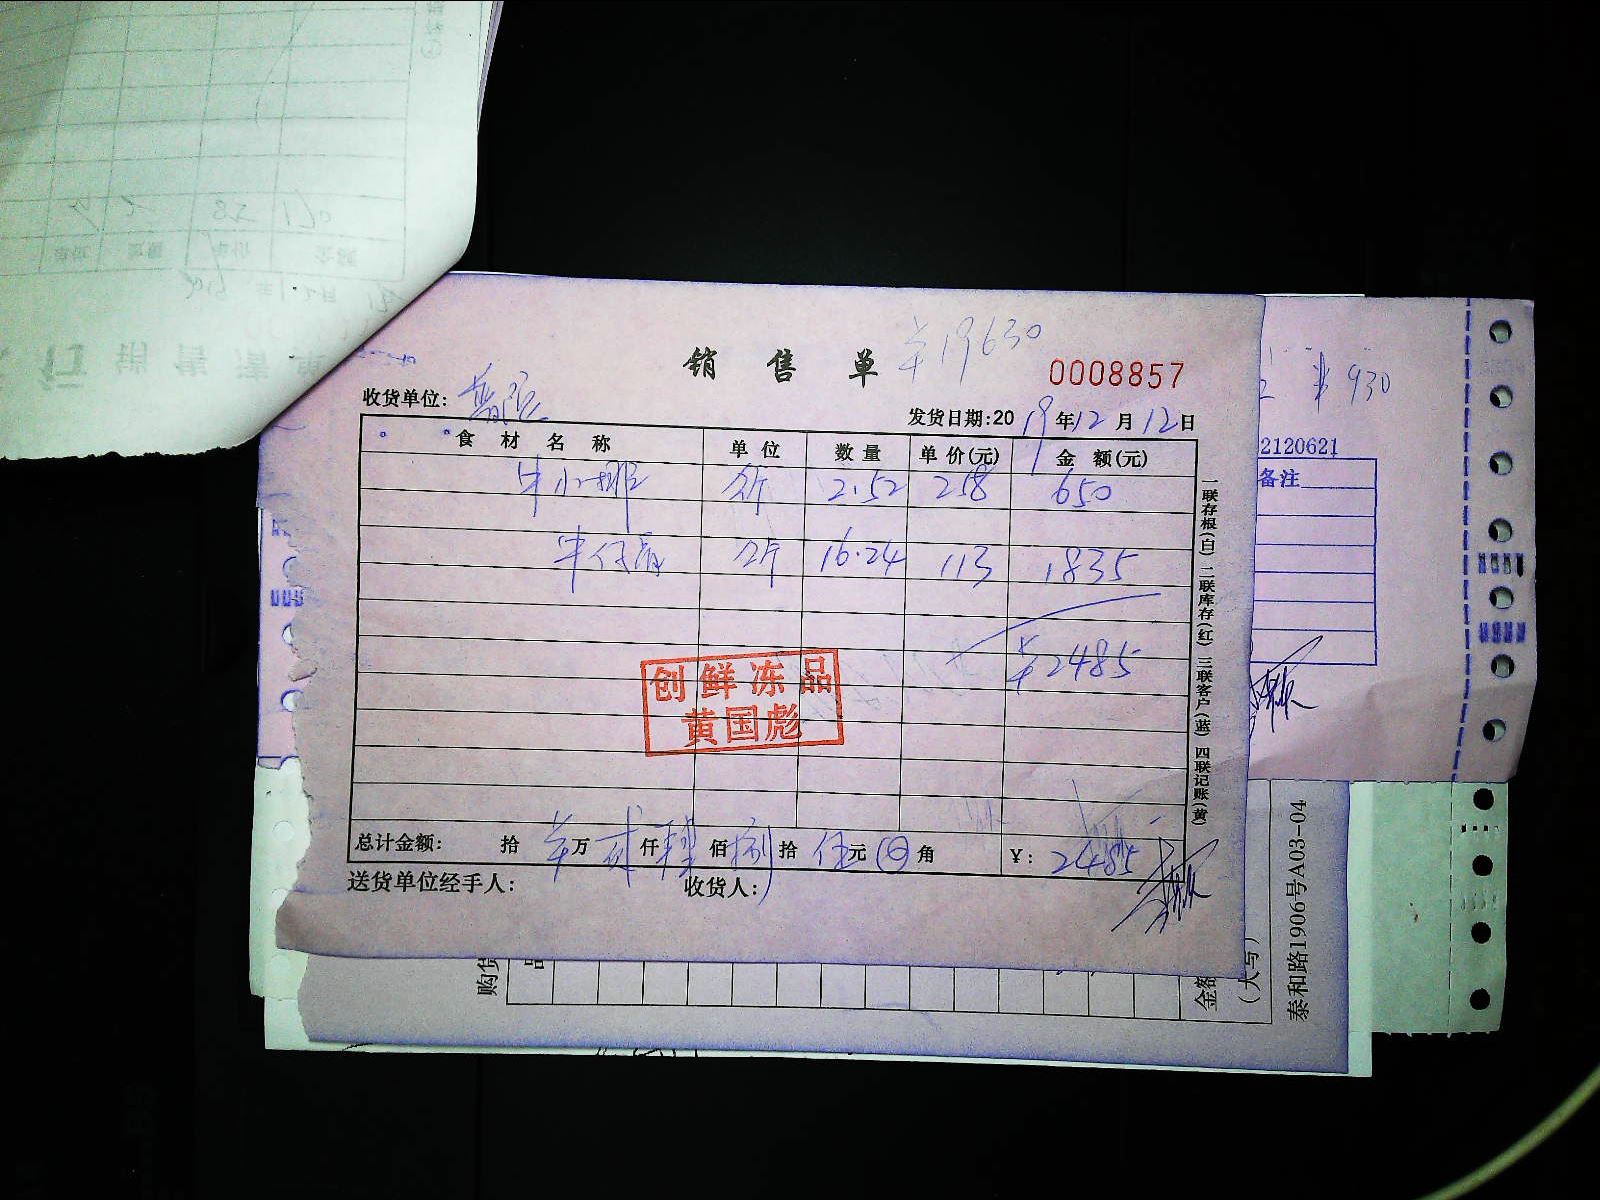 销 售 单
¥19630
0008857
收货单位:
发货日期:2019年12月12日
食 材 名 称 单 位 数 量 单 价(元) 金 额(元)
牛小排 斤 2.52 258 650
牛仔骨 斤 16.24 113 1835
¥2485
创鲜冻品
黄国彪
总计金额: 拾 万 贰仟 肆佰 捌拾 伍元 角 ¥: 2485
送货单位经手人: 收货人:
一联存根(白) 二联库存(红) 三联客户(蓝) 四联记账(黄)
¥930
2120621
备注
购货
品
金额
(大写)
泰和路1906号A03-04